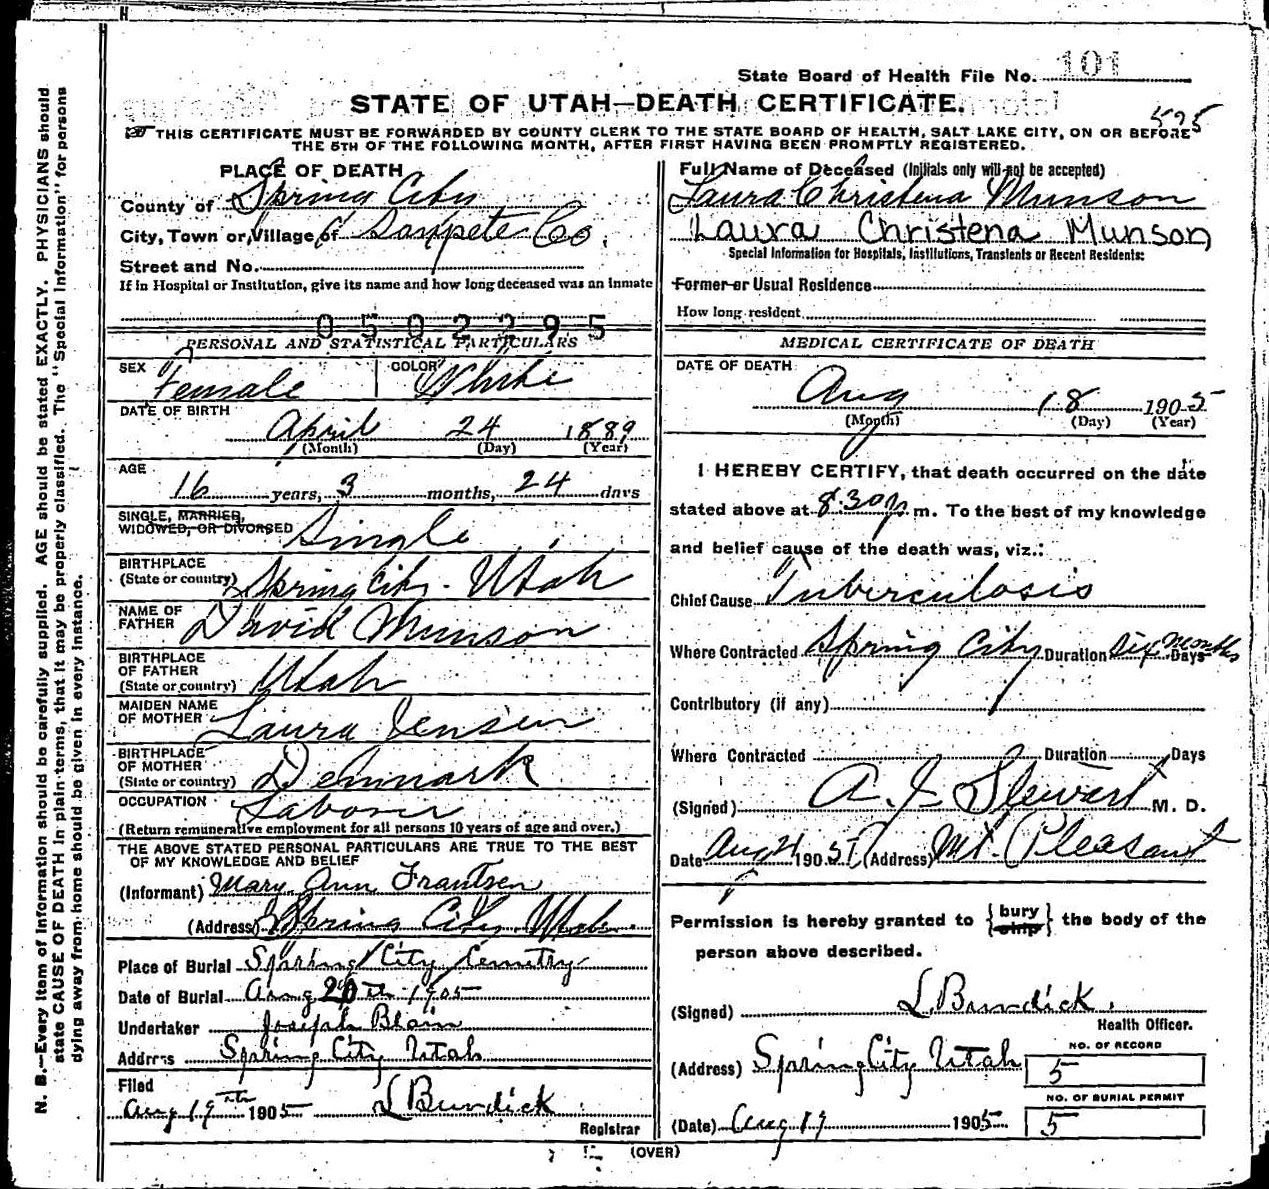 State Board of Health File No. 101
STATE OF UTAH—DEATH CERTIFICATE.
595
THIS CERTIFICATE MUST BE FORWARDED BY COUNTY CLERK TO THE STATE BOARD OF HEALTH, SALT LAKE CITY, ON OR BEFORE
THE 5TH OF THE FOLLOWING MONTH, AFTER FIRST HAVING BEEN PROMPTLY REGISTERED.
PLACE OF DEATH
County of Spring City
City, Town or Village of Sanpete Co.
Street and No.
If in Hospital or Institution, give its name and how long deceased was an inmate
0502295
PERSONAL AND STATISTICAL PARTICULARS
SEX Female COLOR White
DATE OF BIRTH
April 24 1889
(Month) (Day) (Year)
AGE
16 years, 3 months, 24 days
SINGLE, MARRIED,
WIDOWED, OR DIVORSED Single
BIRTHPLACE
(State or country) Spring City - Utah
NAME OF
FATHER David Munson
BIRTHPLACE
OF FATHER
(State or country) Utah
MAIDEN NAME
OF MOTHER Laura Jensen
BIRTHPLACE
OF MOTHER
(State or country) Denmark
OCCUPATION Laborer
(Return remunerative employment for all persons 10 years of age and over.)
THE ABOVE STATED PERSONAL PARTICULARS ARE TRUE TO THE BEST
OF MY KNOWLEDGE AND BELIEF
(Informant) Mary Ann Frantsen
(Address) Spring City, Utah.
Place of Burial Spring City Cemetry
Date of Burial Aug 20th 1905
Undertaker Joseph Blain
Address Spring City Utah
Filed
Aug 19th 1905 L Burdick
Registrar
Full Name of Deceased (Initials only will not be accepted)
Laura Christena Munson
Laura Christena Munson
Special Information for Hospitals, Institutions, Transients or Recent Residents:
Former or Usual Residence
How long resident
MEDICAL CERTIFICATE OF DEATH
DATE OF DEATH
Aug 18 1905
(Month) (Day) (Year)
I HEREBY CERTIFY, that death occurred on the date
stated above at 8.30 p. m. To the best of my knowledge
and belief cause of the death was, viz.:
Chief Cause Tuberculosis
Where Contracted Spring City Duration Six Months Days
Contributory (if any)
Where Contracted Duration Days
(Signed) A. J. Stewart M. D.
Date Aug 21 1905 (Address) Mt. Pleasant
Permission is hereby granted to {bury ship} the body of the
person above described.
(Signed) L. Burdick.
Health Officer.
(Address) Spring City Utah
NO. OF RECORD
5
NO. OF BURIAL PERMIT
5
(Date) Aug 19 1905
(OVER)
N. B.—Every item of Information should be carefully supplied. AGE should be stated EXACTLY. PHYSICIANS should
state CAUSE OF DEATH in plain terms, that it may be properly classified. The "Special Information" for persons
dying away from home should be given in every instance.